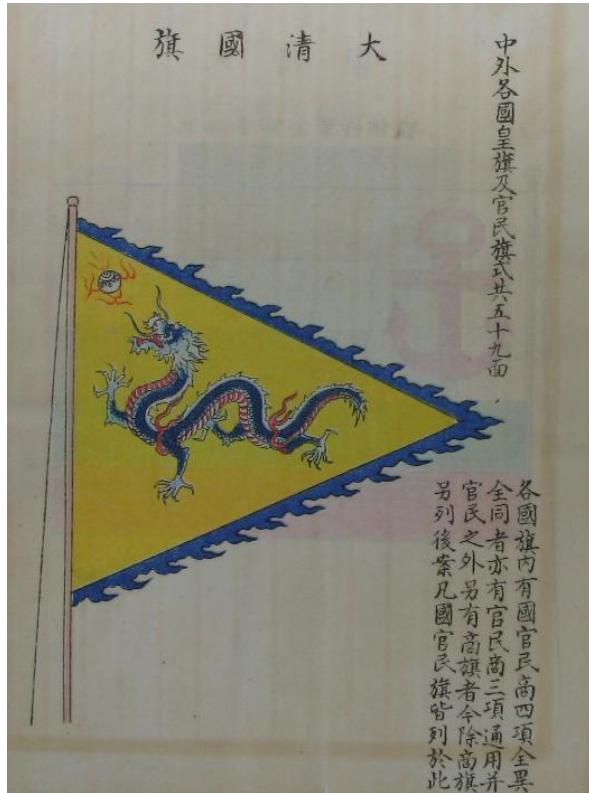 中外各國皇旗及官民旗式共五十九面
大清國旗
各國旗內有國官民商四項全異
全同者亦有官民商三項通用并
官民之外另有商旗者今除商旗
另列後案凡國官民旗皆列於此